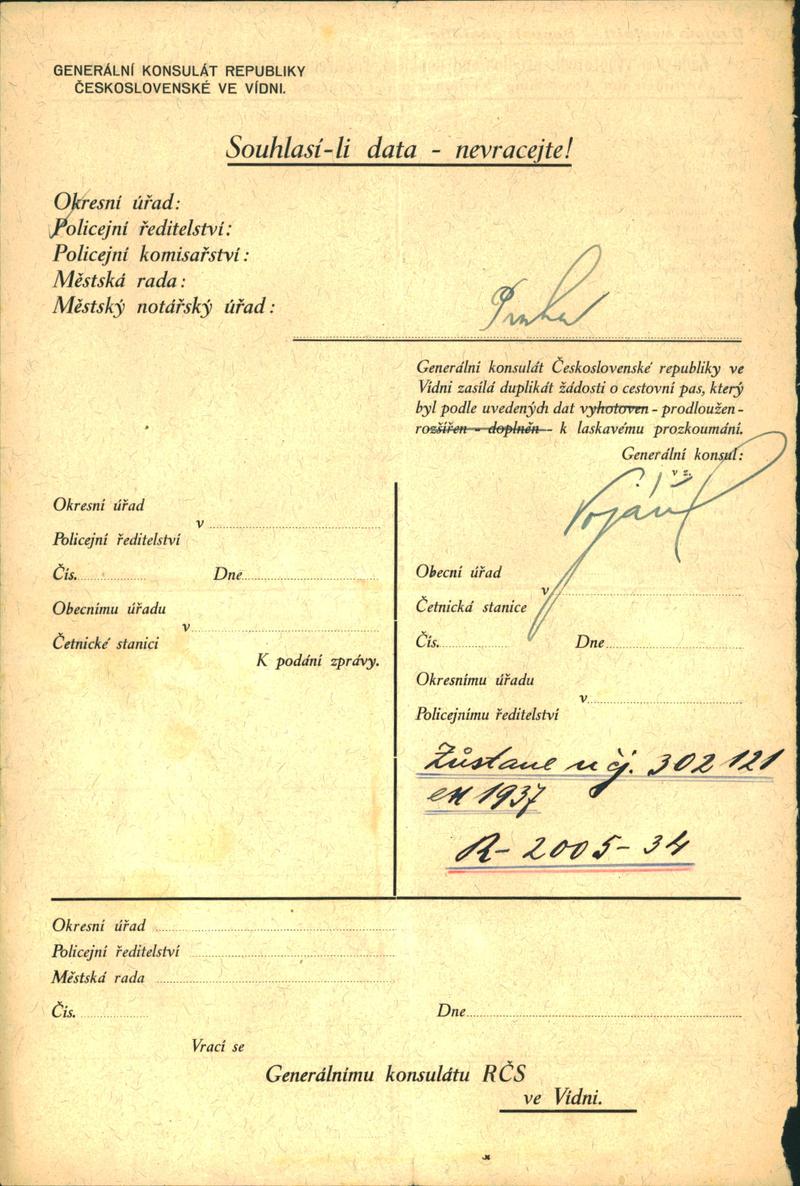 GENERÁLNÍ KONSULÁT REPUBLIKY
ČESKOSLOVENSKÉ VE VÍDNI.
Souhlasí-li data - nevracejte!
Okresní úřad:
Policejní ředitelství:
Policejní komisařství:
Městská rada:
Městský notářský úřad:
Praha
Generální konsulát Československé republiky ve
Vídni zasílá duplikát žádosti o cestovní pas, který
byl podle uvedených dat vyhotoven - prodloužen -
rozšířen - doplněn - k laskavému prozkoumání.
Generální konsul:
v z.
Okresní úřad
v
Policejní ředitelství
Čís. Dne
Obecnímu úřadu
v
Četnické stanici
K podání zprávy.
Obecní úřad
v
Četnická stanice
Čís. Dne
Okresnímu úřadu
v
Policejnímu ředitelství
Zůstane u čj. 302 121
1937
R- 2005-34
Okresní úřad
Policejní ředitelství
Městská rada
Čís. Dne
Vrací se
Generálnímu konsulátu RČS
ve Vídni.